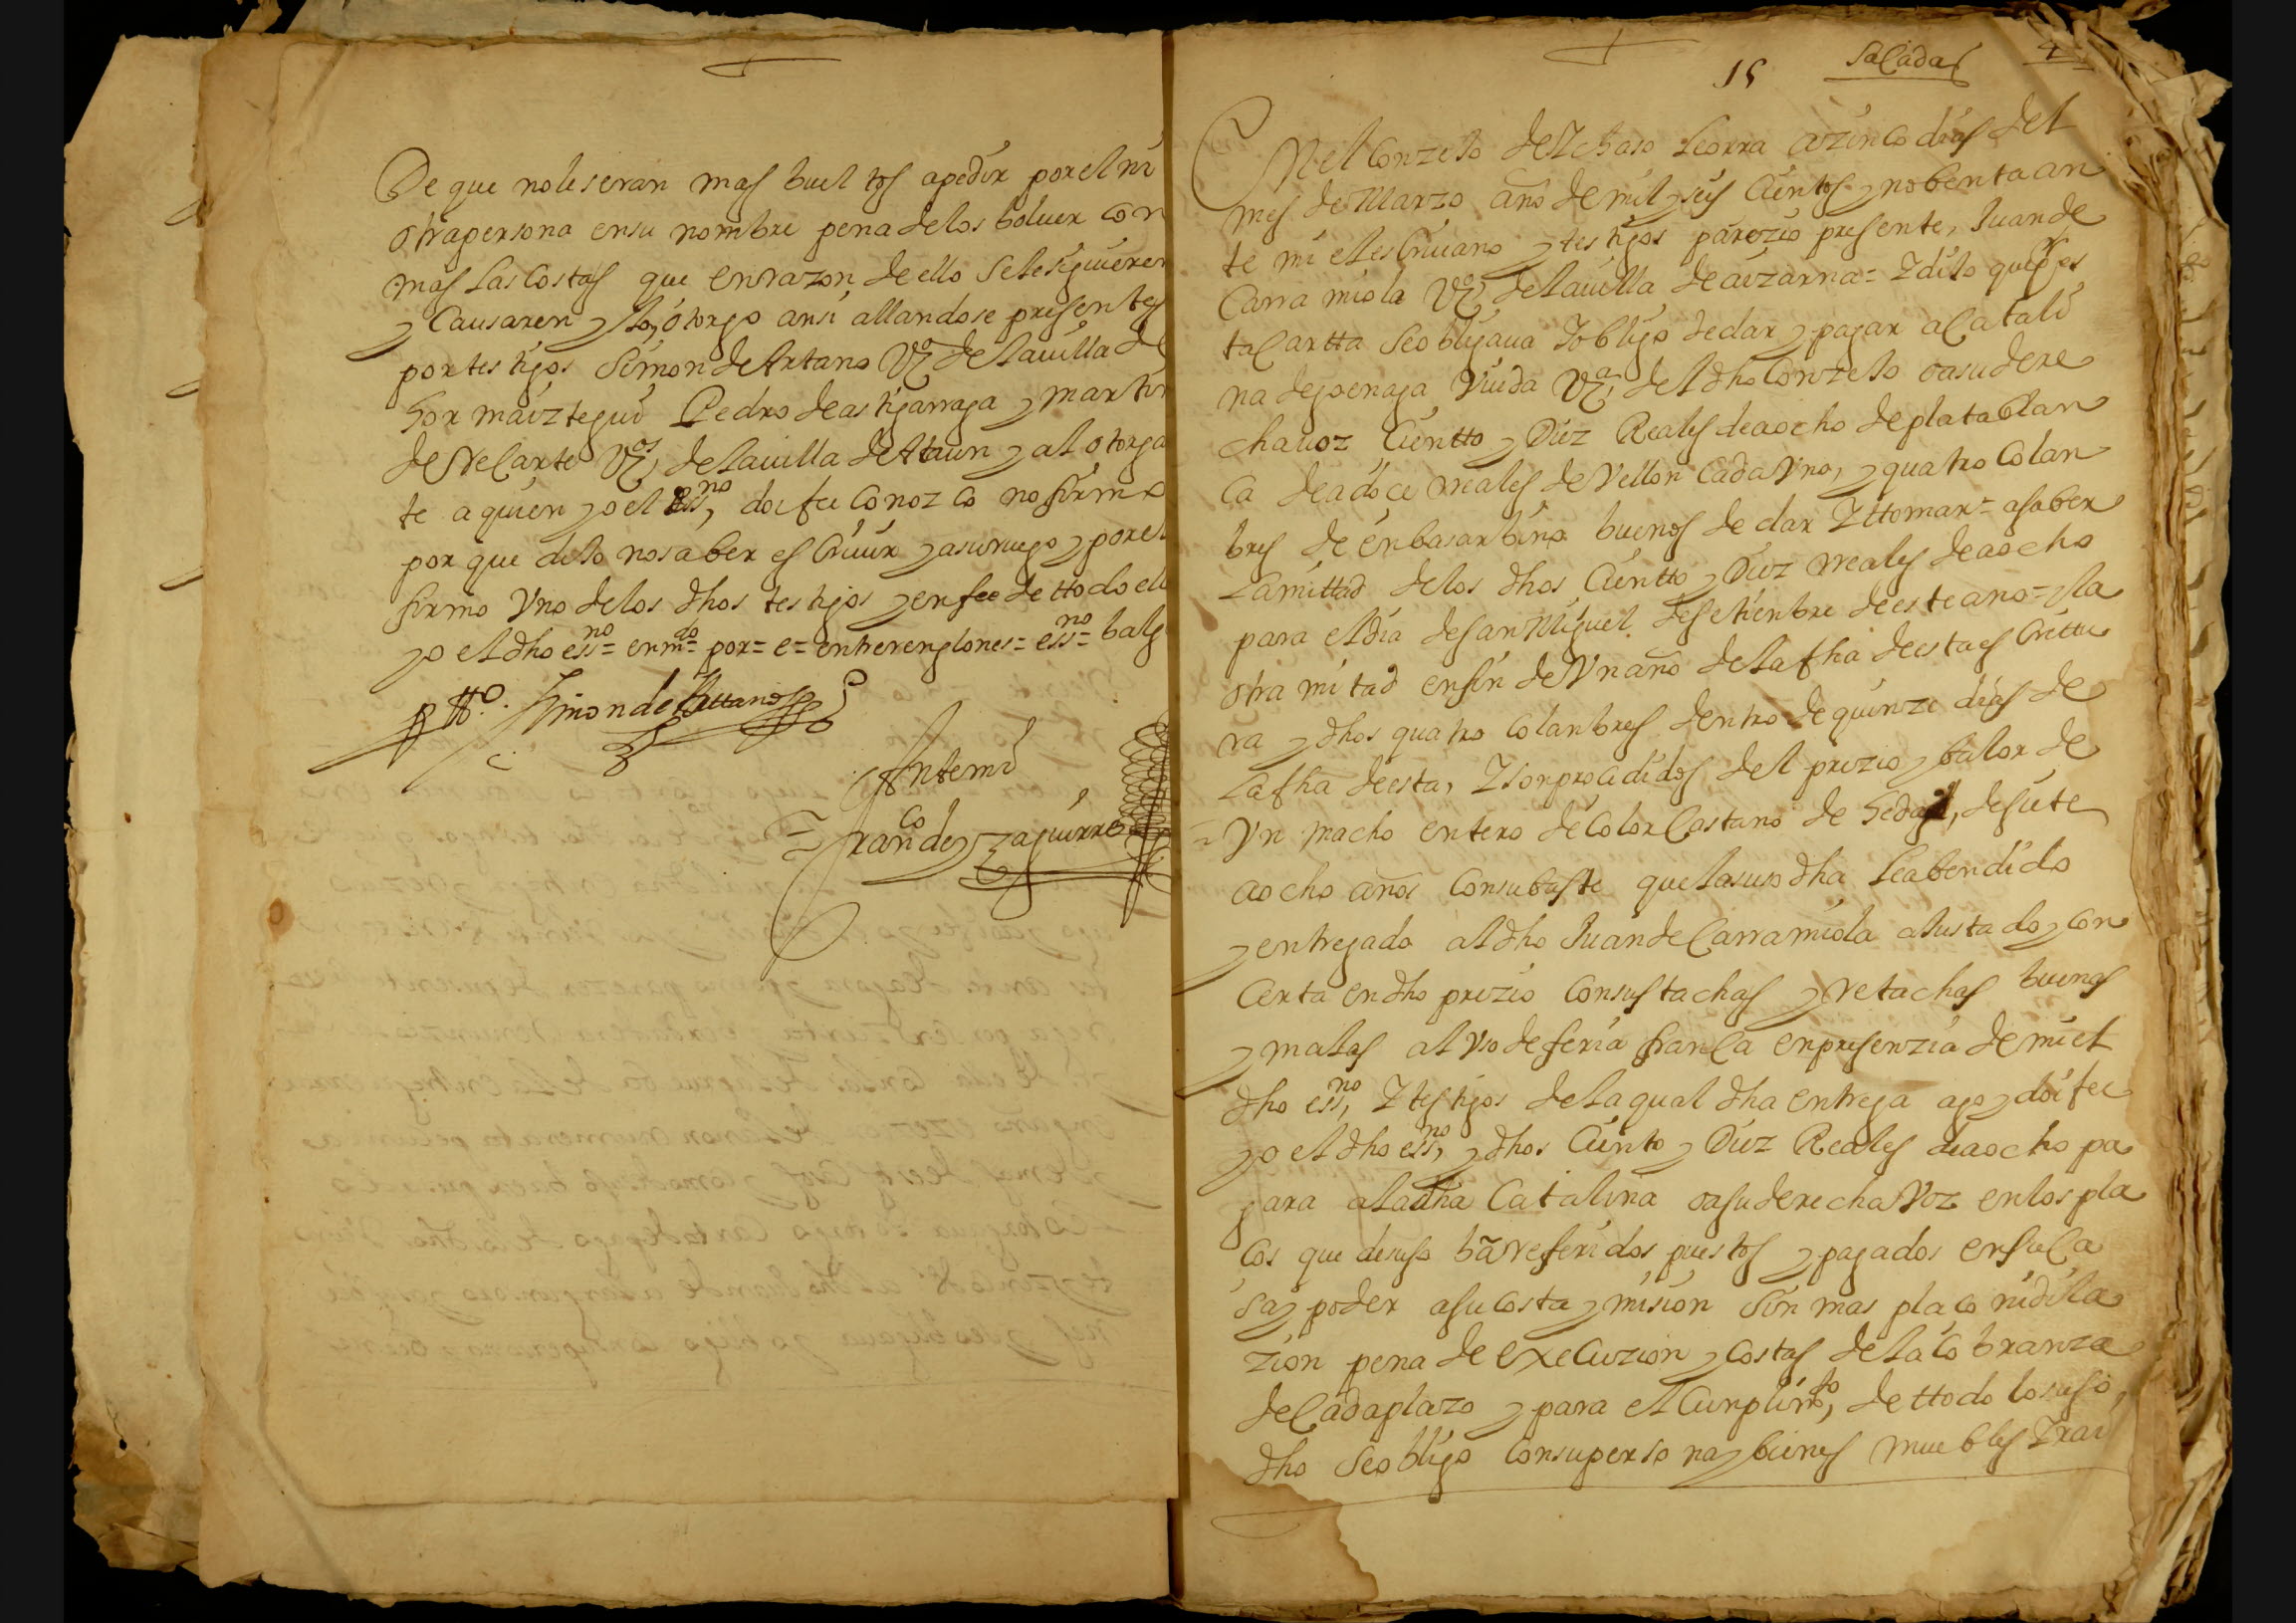 De que no le seran mas bueltos a pedir por el ni
otra persona en su nombre pena de los boluer con
mas las costas que en razon de ello se le siguieren
y Causaren y lo otorgo ansi allandose presentes
por testigos Simon de Artano Vº de la uilla de
hormaiztegui Pedro de astigarraga y martin
de Velarte Vºs de la uilla de Ataun y al otorgan
te a quien yo el essno, doi fee Conozco no firmo
por que dijo no saber escriuir y a su ruego y por el
firmo Vno de los dhos testigos y en fee de ttodo ello
yo el dho essno= enmdo= por= e= entre renglones= essno= balg
p tto. Simon de Arttano
Ante mi
Franco de Yzaguirre
15 Sacada 4
En el Conzejo de Ichaso Leorra a zinco dias del
mes de Marzo año de mil y seis Cientos y nobenta an
te mi el escriuano y testigos parezio presente, Juan de
Carra miola Vº de la uilla de aizarna= Y dijo que por es
ta Cartta se obligaua Y obligo de dar y pagar a Catali
na de goenaga Viuda Vª del dho Conzejo o a su dere
cha uoz Cientto y Diez Reales de a ocho de plata blan
ca de a doce rreales de Vellon cada Vno, y quatro Colan
bres de enbasar bino buenos de dar Y ttomar= a saber
La mittad de los dhos Cientto y Diez rreales de a ocho
para el dia de san Miguel de setienbre de este ano= y la
otra mitad en fin de Vn año de la fha de esta escrittu
ra y dhos quatro Colanbres dentro de quinze dias de
La fha de esta, Y son procedidos del prezio y balor de
Vn macho entero de Color Castano de hedad, de siete
a ocho años Con su baste que la suso dha le a bendido
y entregado al dho Juan de Carramiola ajustado y Con
Certa en dho prezio Con sus tachas y retachas buenas
y malas al Vso de feria franca en presenzia de mi el
dho essno, Y testigos de la qual dha entrega ago y doi fee
yo el dho essno, y dhos Ciento y Diez Reales de a ocho pa
gara a la dha Catalina o a su derecha Voz en los pla
Cos que de suso bā referidos puestos y pagados en su Ca
sa y poder a su Costa y mision Sin mas placo ni dila
zion pena de execuzion y Costas de la Cobranza
de Cada plazo y para el Cunplimto, de ttodo lo suso
dho se obligo Con su persona y bienes muebles Y rai